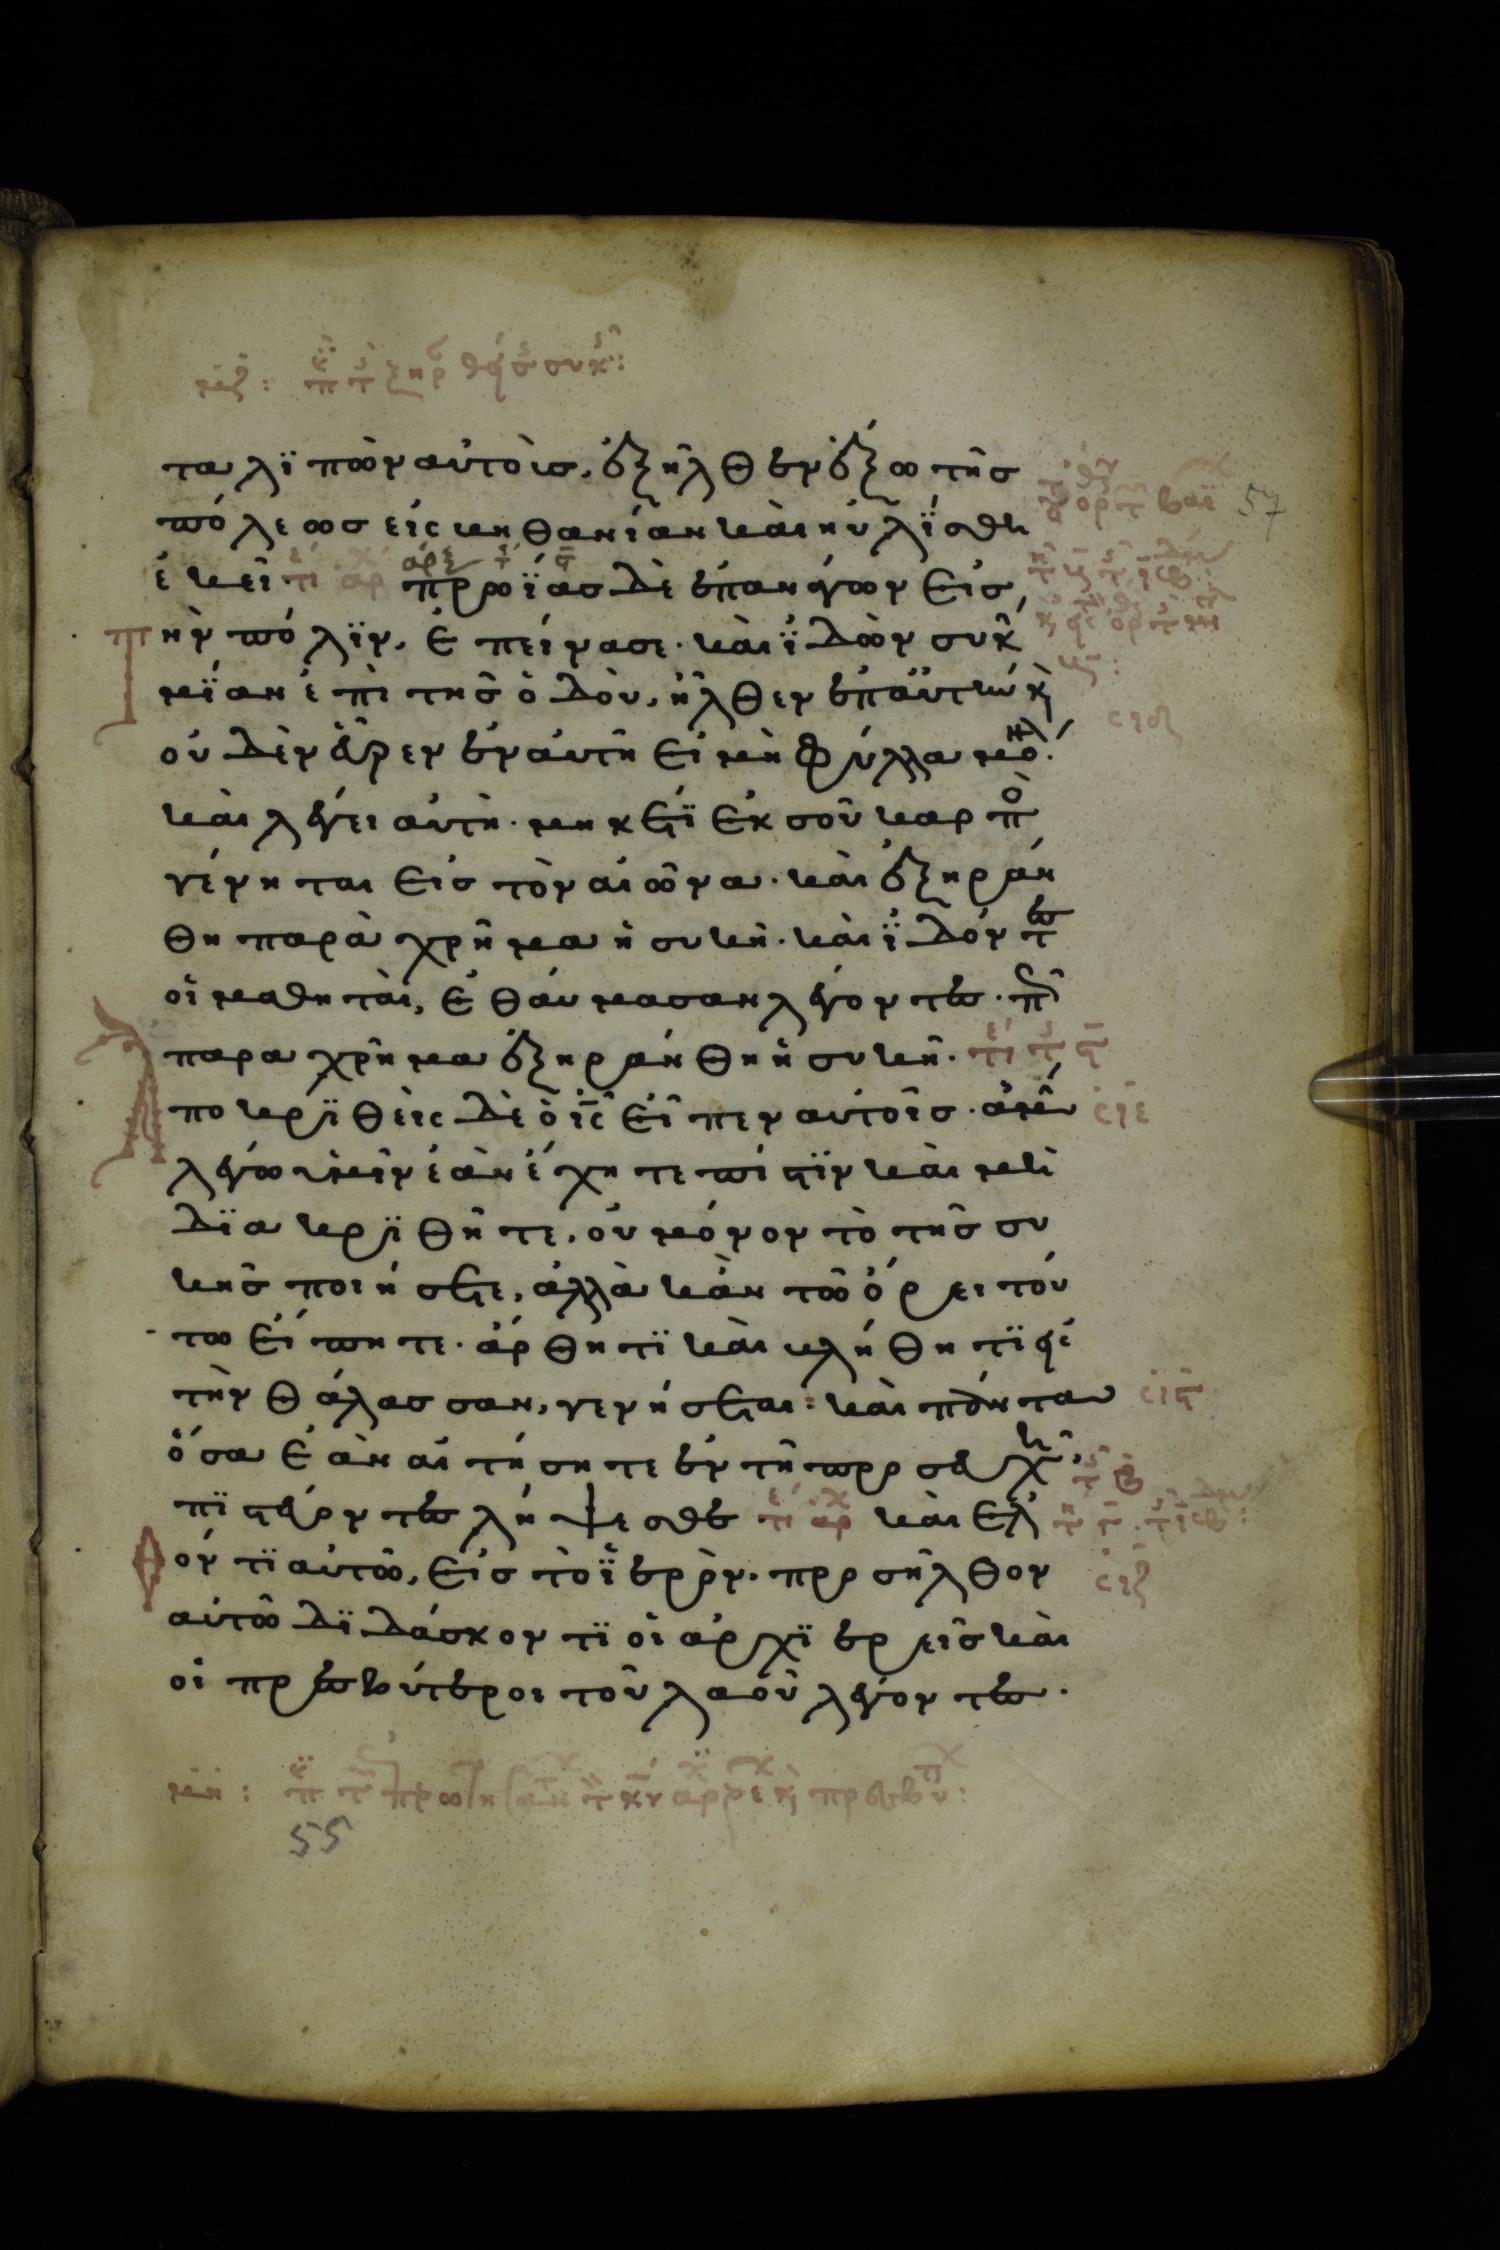 ταλϊπὼν αὐτοὺσ, ἐξῆλθεν ἔξω τῆσ
πόλεωσ εἰς βηθανίαν καὶ ηὐλΐσθη
ἐκεῖ πρωΐασ δὲ ἐπανάγων εἰσ
τὴν πόλϊν, ἐπείνασε. καὶ ϊδὼν συκῆ
μΐαν ἐπὶ τῆσ ὁδοῦ, ἦλθεν ἐπ αὐτὴν κ
οὐδὲν εὗρεν ἐν αὐτῆ εἰ μὴ φύλλα μο
καὶ λέγει αὐτῆ. μηκέτϊ ἐκ σοῦ καρπὸ
γένηται εἰσ τὸν αἰῶνα. καὶ ἐξηράν
θη παραχρῆμα ἡ συκῆ. καὶ ϊδόντεσ
οἱ μαθηταὶ, ἐθαύμασαν λέγοντεσ. πῶσ
παραχρῆμα ἐξηράνθη ἡ συκῆ.
Ἀποκρϊθεὶς δὲ ὁ ις εἶπεν αὐτοῖσ. ἀμὴν
λέγω ὑμῖν ἐὰν ἔχητε πίστϊν καὶ μὴ
δϊακρϊθῆτε, οὐ μόνον τὸ τῆσ συ
κῆσ ποιήσετε, ἀλλὰ κἂν τῶ ὄρει τού
τω εἴπητε. ἄρθητϊ καὶ βλήθητϊ εἰσ
τὴν θάλασσαν, γενήσεται: καὶ πάντα
ὅσα ἐὰν αἰτήσητε ἐν τῆ προσευχῆ,
πϊστεύοντεσ λήψεσθε καὶ ἐλ
θόντϊ αὐτῶ, εἰσ τὸ ϊερὸν. προσῆλθον
αὐτῶ δϊδάσκοντϊ οἱ ἀρχϊερεῖσ καὶ
οἱ πρεσβύτεροι τοῦ λαοῦ λέγοντεσ.
55
57